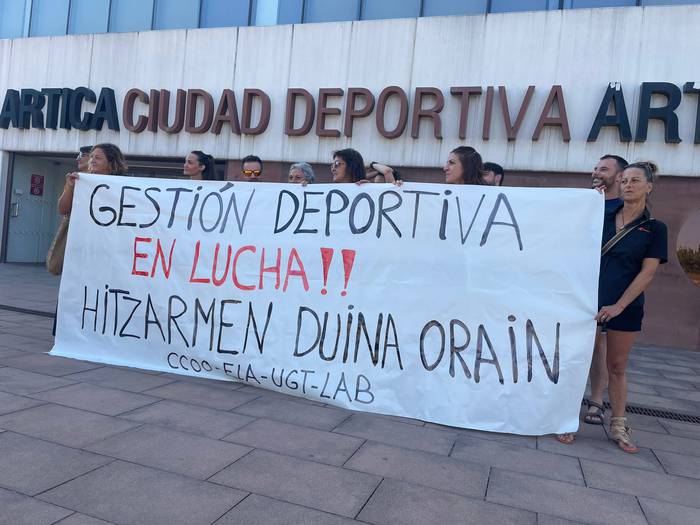 ARTICA CIUDAD DEPORTIVA ART
GESTIÓN DEPORTIVA
EN LUCHA!!
HITZARMEN DUINA ORAIN
CCOO-ELA-UGT-LAB